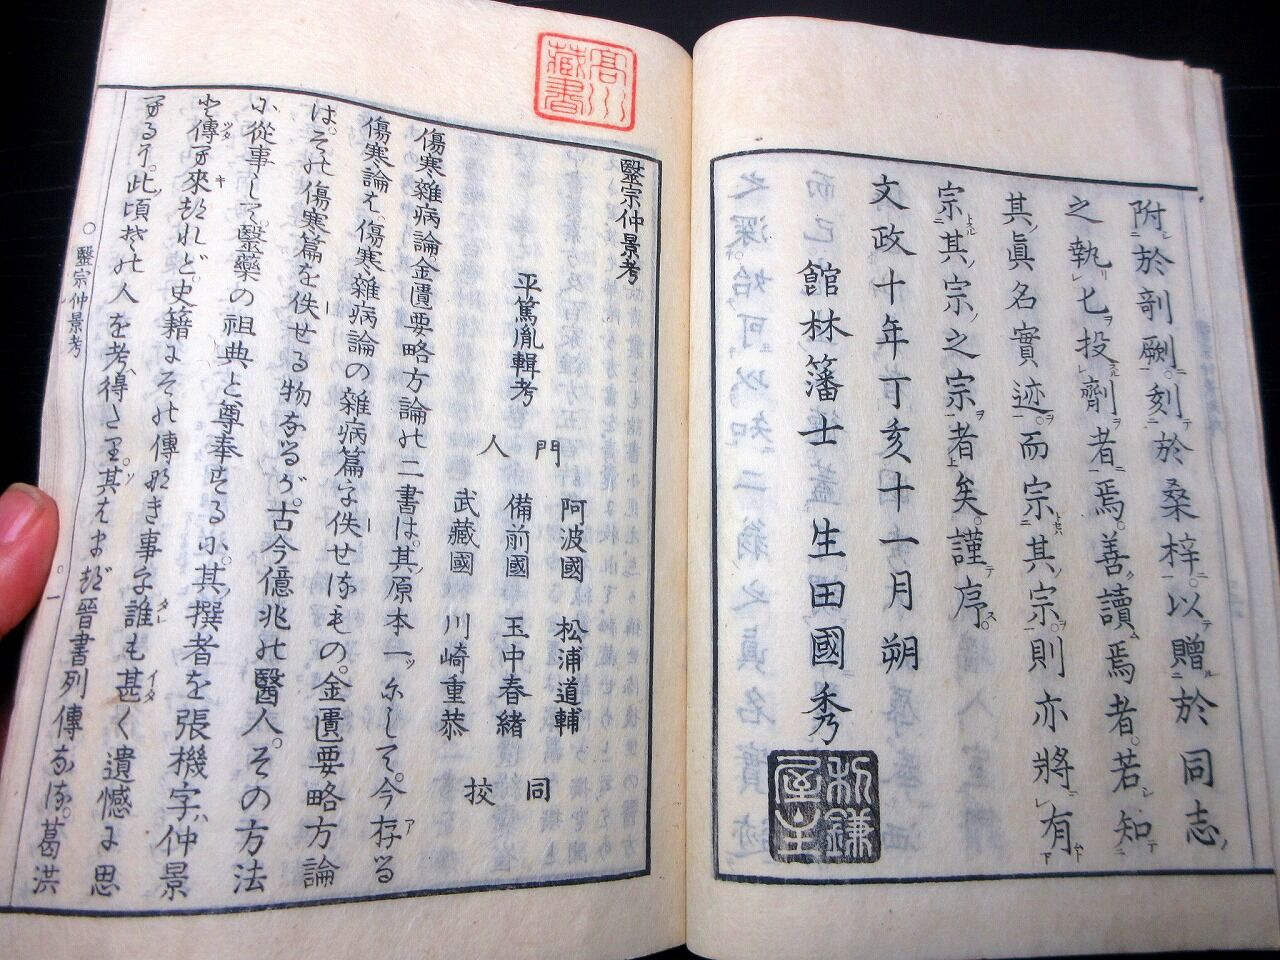 附於剞劂。刻於桑梓。以贈於同志
之執匕投劑者焉。善讀焉者。若知
其眞名實迹。而宗其宗。則亦將有
宗其宗之宗者矣。謹序。
文政十年丁亥十一月朔
館林藩士 生田國秀
高川藏書
醫宗仲景考
平篤胤輯考
門人
阿波國 松浦道輔
備前國 玉中春緒
武藏國 川崎重恭
同校
傷寒雜病論。金匱要略方論の二書は。其原本一にして。今存る
傷寒論は。傷寒雜病論の雜病篇を佚せるもの。金匱要略方論
は。その傷寒篇を佚せる物なるが。古今億兆の醫人。その方法
に從事して。醫藥の祖典と尊奉するに。其撰者を張機字仲景
と傳へ來れど。史籍にその傳なき事を誰も甚く遺憾に思
へるに。此頃その人を考得たり。其はまづ晉書列傳なる。葛洪
醫宗仲景考 一